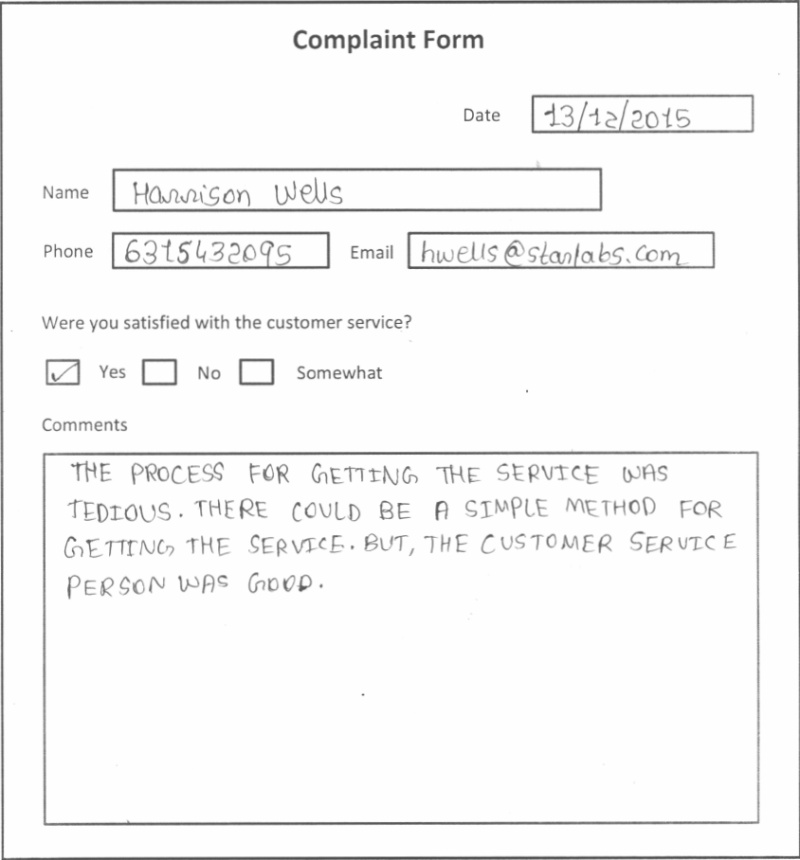 Complaint Form
Date 13/12/2015
Name Harrison Wells
Phone 6315432095 Email hwells@starlabs.com
Were you satisfied with the customer service?
Yes No Somewhat
Comments
THE PROCESS FOR GETTING THE SERVICE WAS
TEDIOUS. THERE COULD BE A SIMPLE METHOD FOR
GETTING THE SERVICE. BUT, THE CUSTOMER SERVICE
PERSON WAS GOOD.